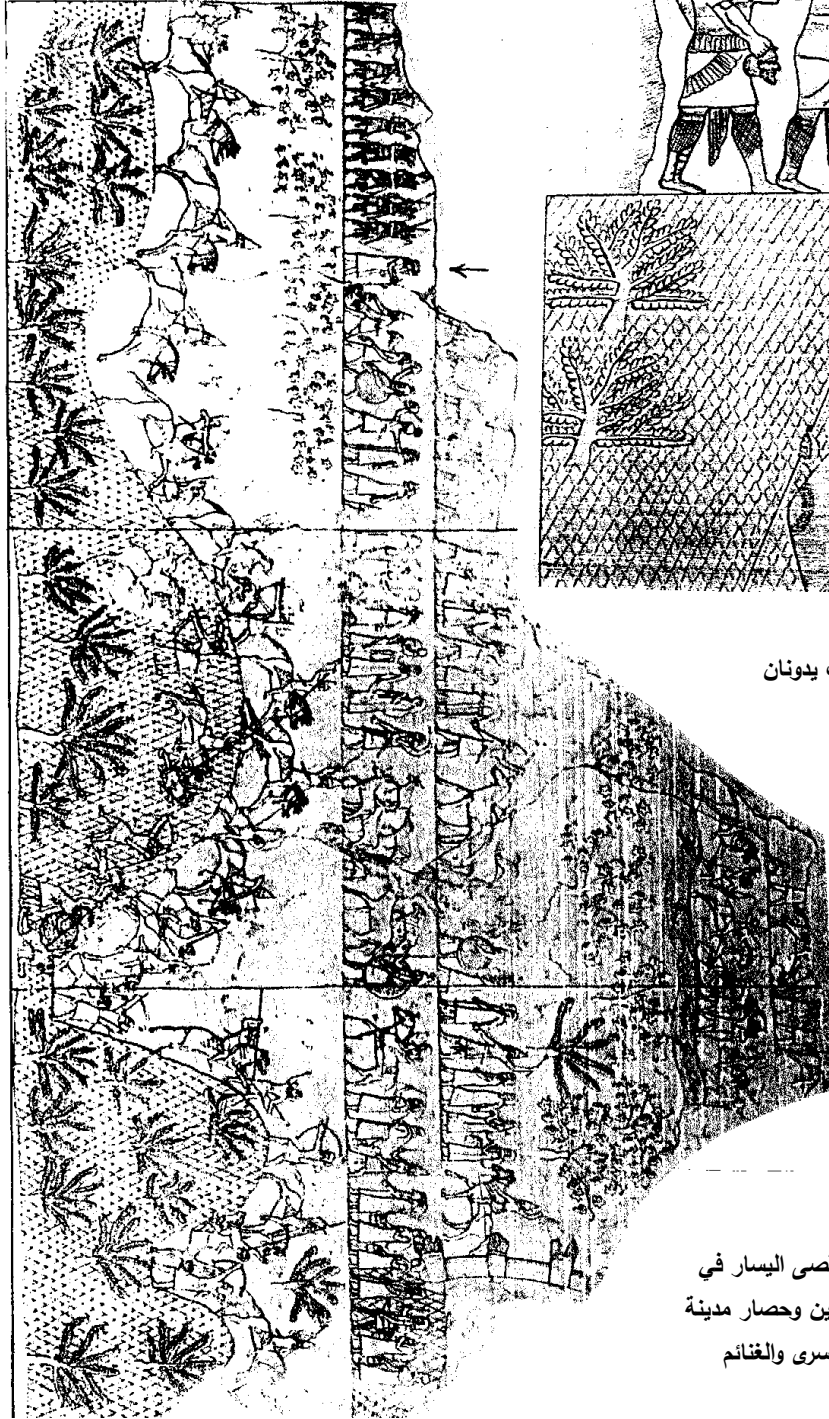 يدونان
صى اليسار في
ين وحصار مدينة
سرى والغنائم